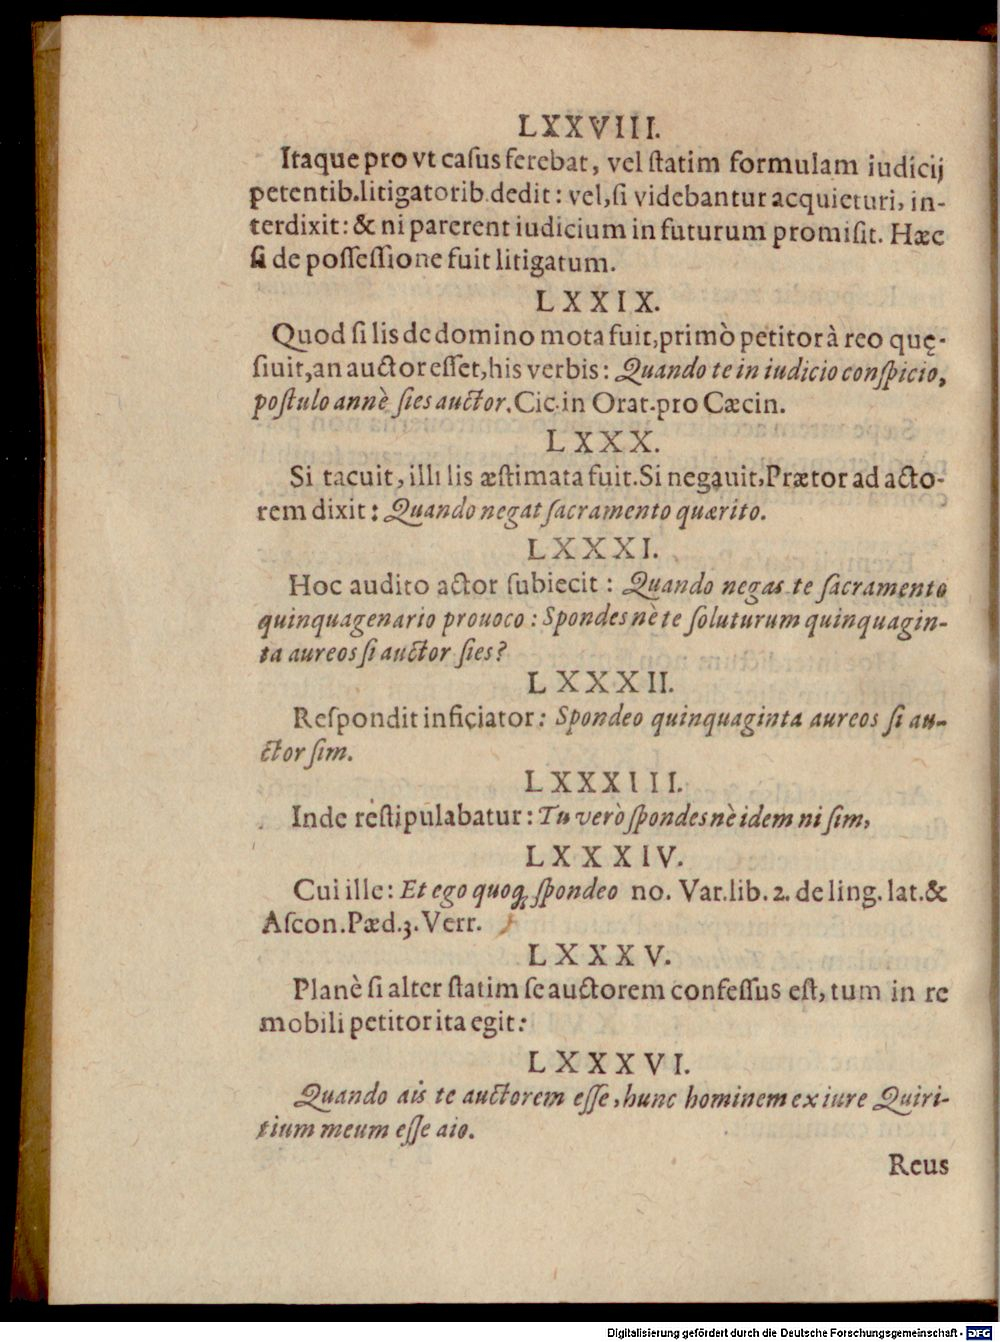 LXXVIII.
Itaque pro vt caſus ferebat, vel ſtatim formulam iudicij
petentib.litigatorib.dedit: vel,ſi videbantur acquieturi, in-
terdixit: & ni parerent iudicium in futurum promiſit. Hæc
ſi de poſſeſſione fuit litigatum.
LXXIX.
Quod ſi lis de domino mota fuit,primò petitor à reo quę-
ſiuit,an auctor eſſet,his verbis: Quando te in iudicio conſpicio,
poſtulo annè ſies auctor.Cic.in Orat.pro Cæcin.
LXXX.
Si tacuit, illi lis æſtimata fuit.Si negauit,Prætor ad acto-
rem dixit: Quando negat ſacramento quærito.
LXXXI.
Hoc audito actor ſubiecit: Quando negas te ſacramento
quinquagenario prouoco: Spondes nè te ſoluturum quinquagin-
ta aureos ſi auctor ſies?
LXXXII.
Reſpondit inficiator: Spondeo quinquaginta aureos ſi au-
ctor ſim.
LXXXIII.
Inde reſtipulabatur: Tu verò ſpondes nè idem ni ſim,
LXXXIV.
Cui ille: Et ego quoq; ſpondeo no. Var.lib.2. de ling. lat.&
Aſcon.Pæd.3.Verr.
LXXXV.
Planè ſi alter ſtatim ſe auctorem confeſſus eſt, tum in re
mobili petitor ita egit:
LXXXVI.
Quando ais te auctorem eſſe, hunc hominem ex iure Quiri-
tium meum eſſe aio.
Reus
Digitalisierung gefördert durch die Deutsche Forschungsgemeinschaft - DFG